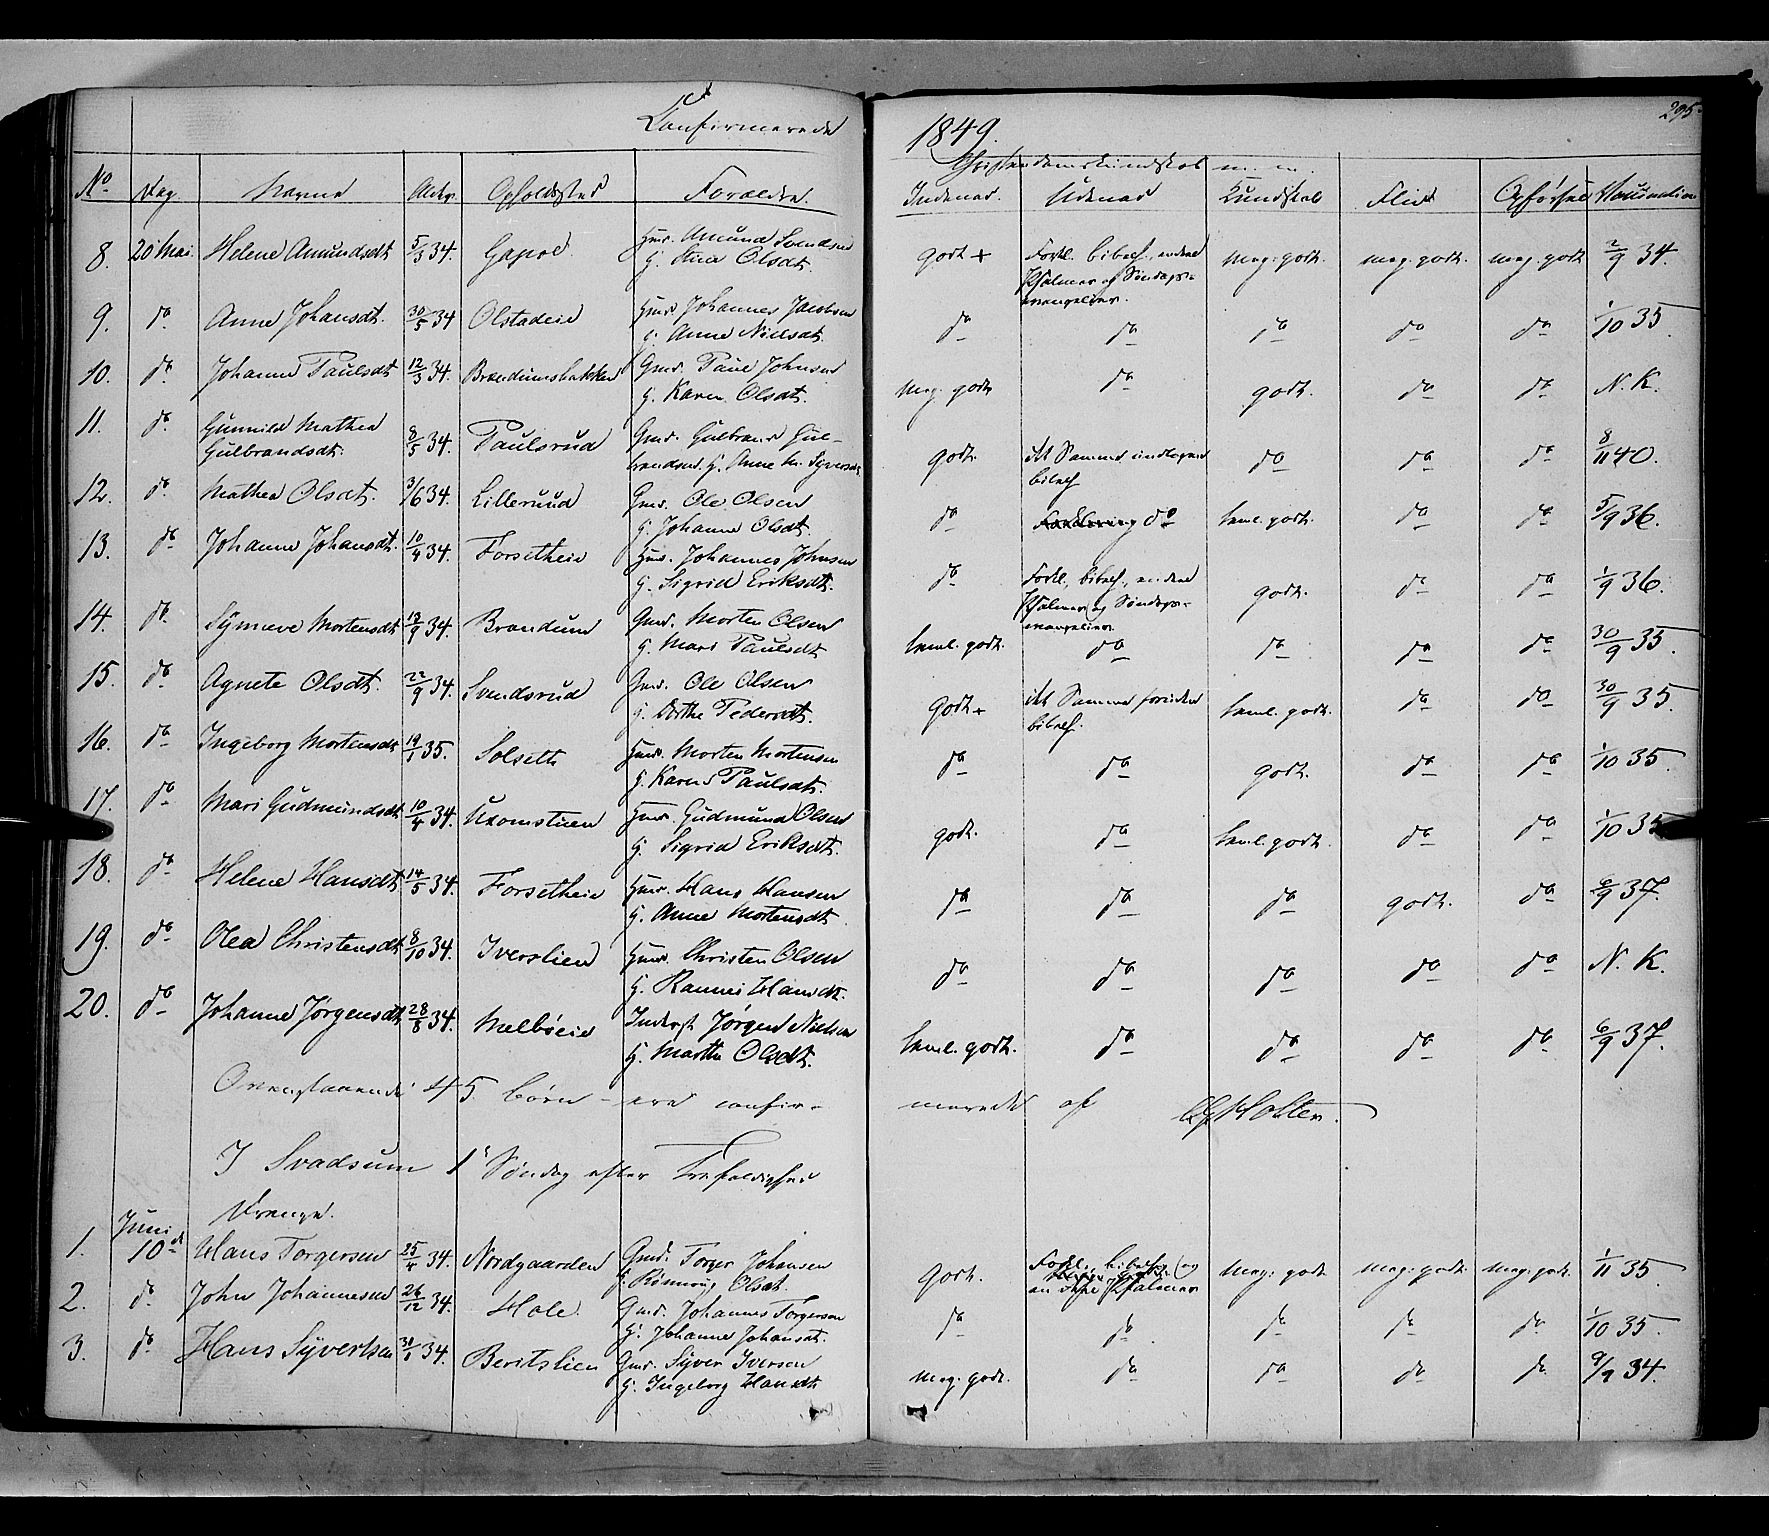 Confirmerede 1849.
295.
Christendomskundskab m. m.
No Dag Navne Alder Opholdssted Forældre. Indenad. Udenad Kundskab Flid Opførsel Vaccination
8. 20 Mai. Helene Amundsdt. 5/3 34. Gapol Huus. Amund Svendsen godt + Forkl. bibelh., endeel meg: godt. meg: godt. meg: godt 2/9 34.
H. Olsdt. Psalmer og Søndags-
evangelier.
9. do Anne Johansdt. 30/5 34 Olstadeie Huusm. Johannes Jacobsen do do do do do 1/10 35
H. Anne Nielsdt.
10. do Johanne Paulsdt 12/3 34. Brændumsbakken Gmd. Paul Johnsen meg. godt do godt. do do N. K.
H. Karen Olsdt.
11. do Gunnild Mathea 8/5 34. Paulsrud Gmd. Gulbrand Gul- godt. det Samme undtagen do do do 8/11 40.
Gulbrandsdt. brandsen. H. Anne M. Syversdt bibelh
12. do Mathea Olsdt. 3/6 34. Lillerud Gmd. Ole Olsen do do teml. godt. do do 5/9 36.
H. Johanne Olsdt.
13. do Johanne Johansdt. 10/4 34. Forsetheie Huus. Johannes Johnsen do Forkl., bibelh., endeel godt. do do 1/9 36.
H. Sigrid Eriksdt. Psalmer og Søndags-
evangelier
14. do Synneve Mortensdt 19/9 34. Brændum Gmd. Morten Olsen teml. godt. do do do do 30/9 35.
H. Mari Paulsdt
15. do Agnete Olsdt. 22/9 34. Svendsrud Gmd. Ole Olsen godt + det Samme foruden teml. godt. do do 30/9 35.
H. Dorthe Pedersdt. bibelh.
16. do Ingeborg Mortensdt 19/1 35. Solseth Huus. Morten Mortensen do do godt. do do 1/10 35.
H. Karen Paulsdt.
17. do Mari Gudmundsdt 10/4 34. Huus. Gudmund Olsen godt. do teml. godt. do do 1/10 35
H. Sigrid Eriksdt.
18. do Helene Hansdt. 14/5 34. Forsetheie Huus. Hans Hansen do do do godt. do 6/9 37.
H. Anne Mortensdt.
19. do Olea Christensdt 8/10 34. Iverslien Huus. Christen Olsen do do do do do N. K.
H. Rannei Hansdt.
20. do Johanne Jørgensdt 28/8 34. Melbøeie Inderst Jørgen Nielsen teml. godt. do do do do 6/9 37.
H. Marthe Olsdt.
Ovenstaaende 45 Børn ere confir- merede af Holter.
I Svadsum 1 Søndag efter Trefoldighed
Drenge.
Juni
1. 10de Hans Torgersen 25/4 34. Nordgaarden Gmd. Torger Johansen godt. Forkl., bibelh., og meg: godt meg: godt. meg: godt. 1/11 35.
H. Rønnoug Olsdt. en deel Psalmer
2. do John Johannesen 26/12 34. Hole Gmd. Johannes Torgersen do do do do do 1/10 35.
H. Johanne Johansdt.
3. do Hans Syvertsen 30/1 34. Beritslien Gmd. Syver Iversen meg. godt. do do do do 9/9 34.
H. Ingeborg Hansdt